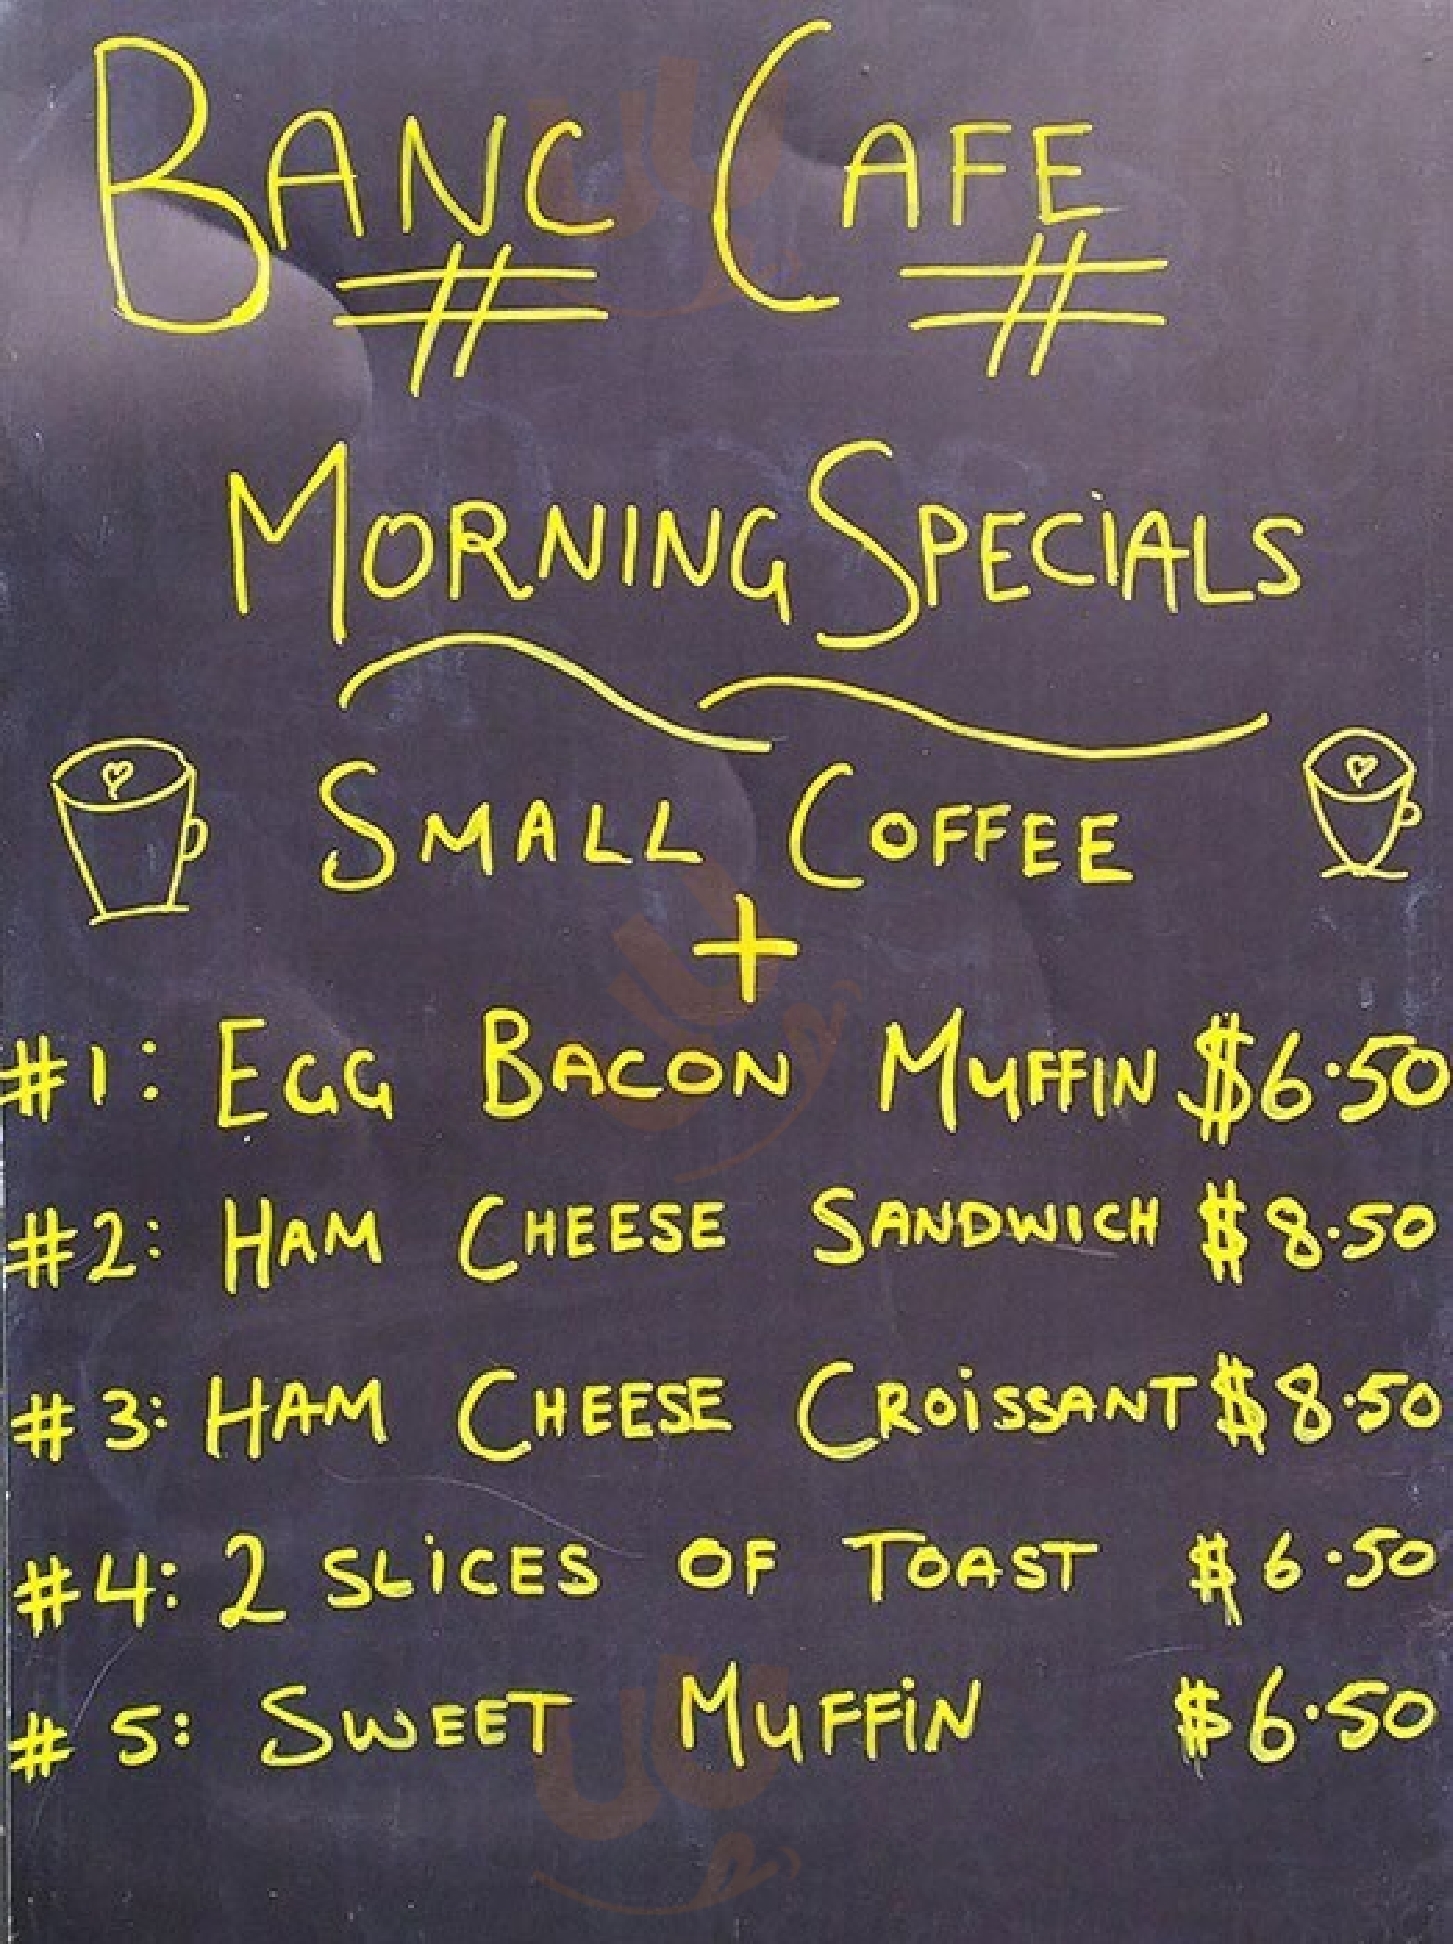 BANC CAFE
MORNING SPECIALS
SMALL COFFEE
+
#1: EGG BACON MUFFIN $6.50
#2: HAM CHEESE SANDWICH $8.50
#3: HAM CHEESE CROISSANT $8.50
#4: 2 SLICES OF TOAST $6.50
#5: SWEET MUFFIN $6.50